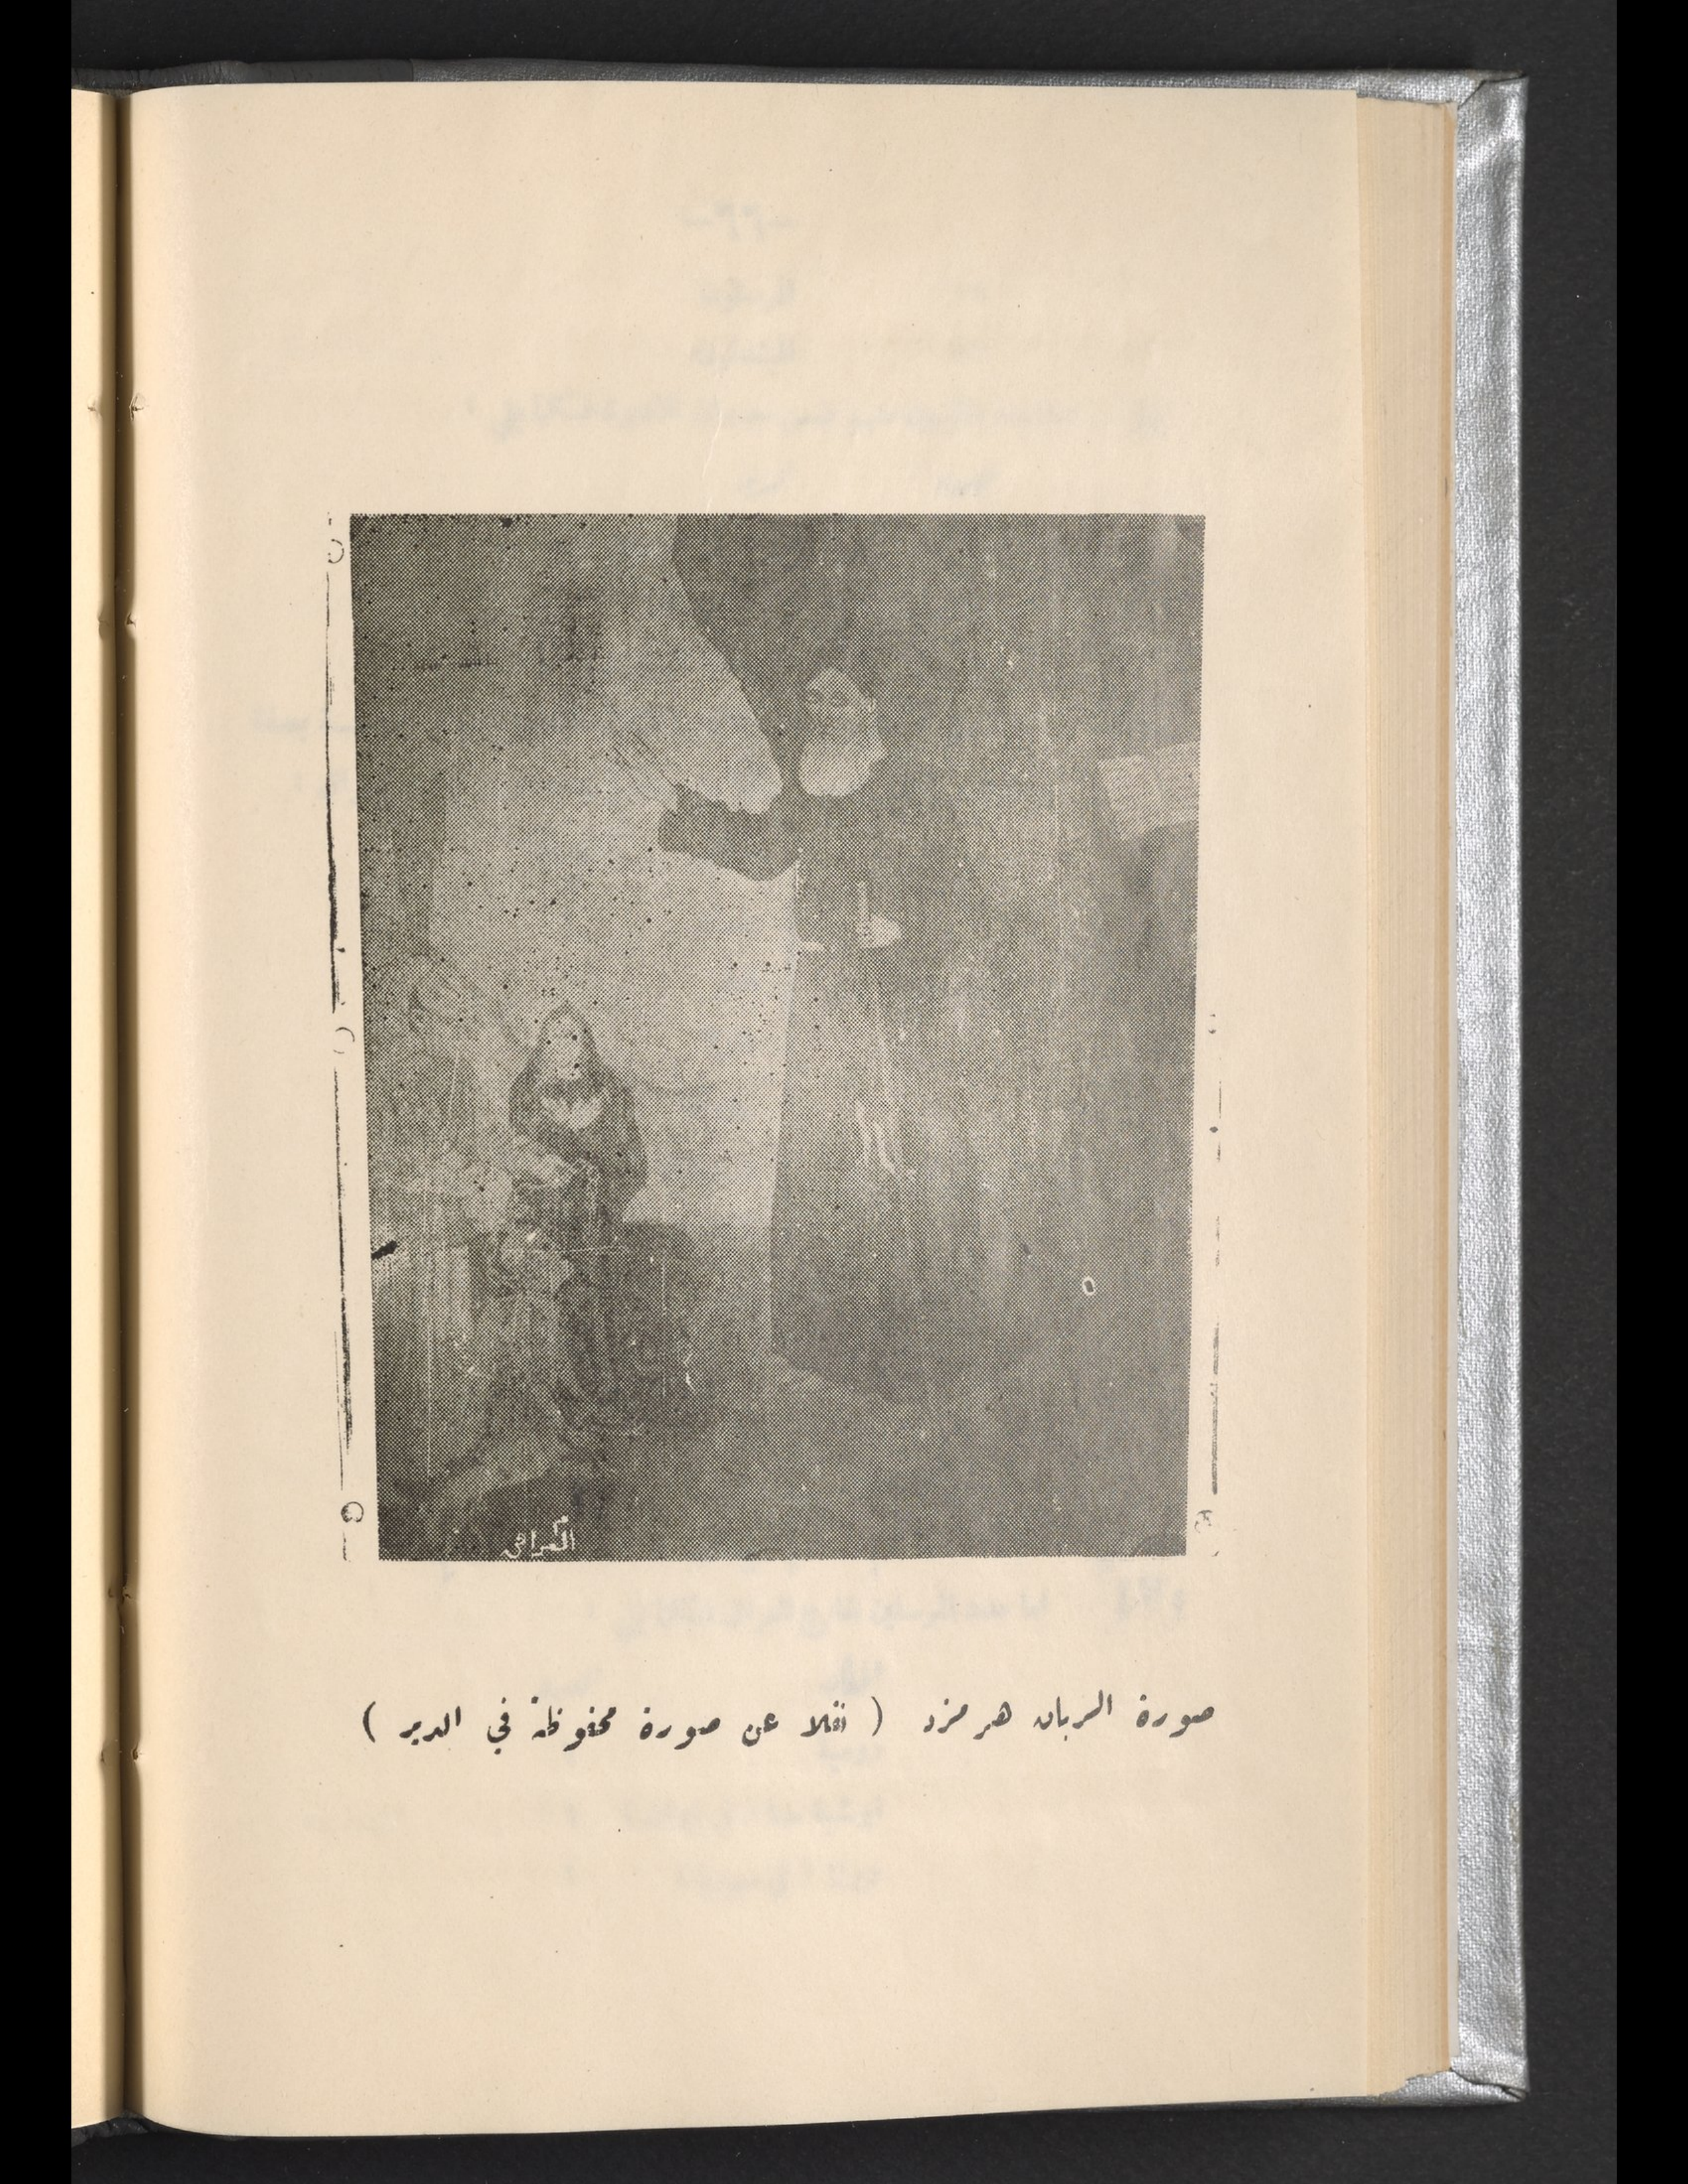 صورة الربان هرمزد ( نقلا عن صورة محفوظة في الدير )